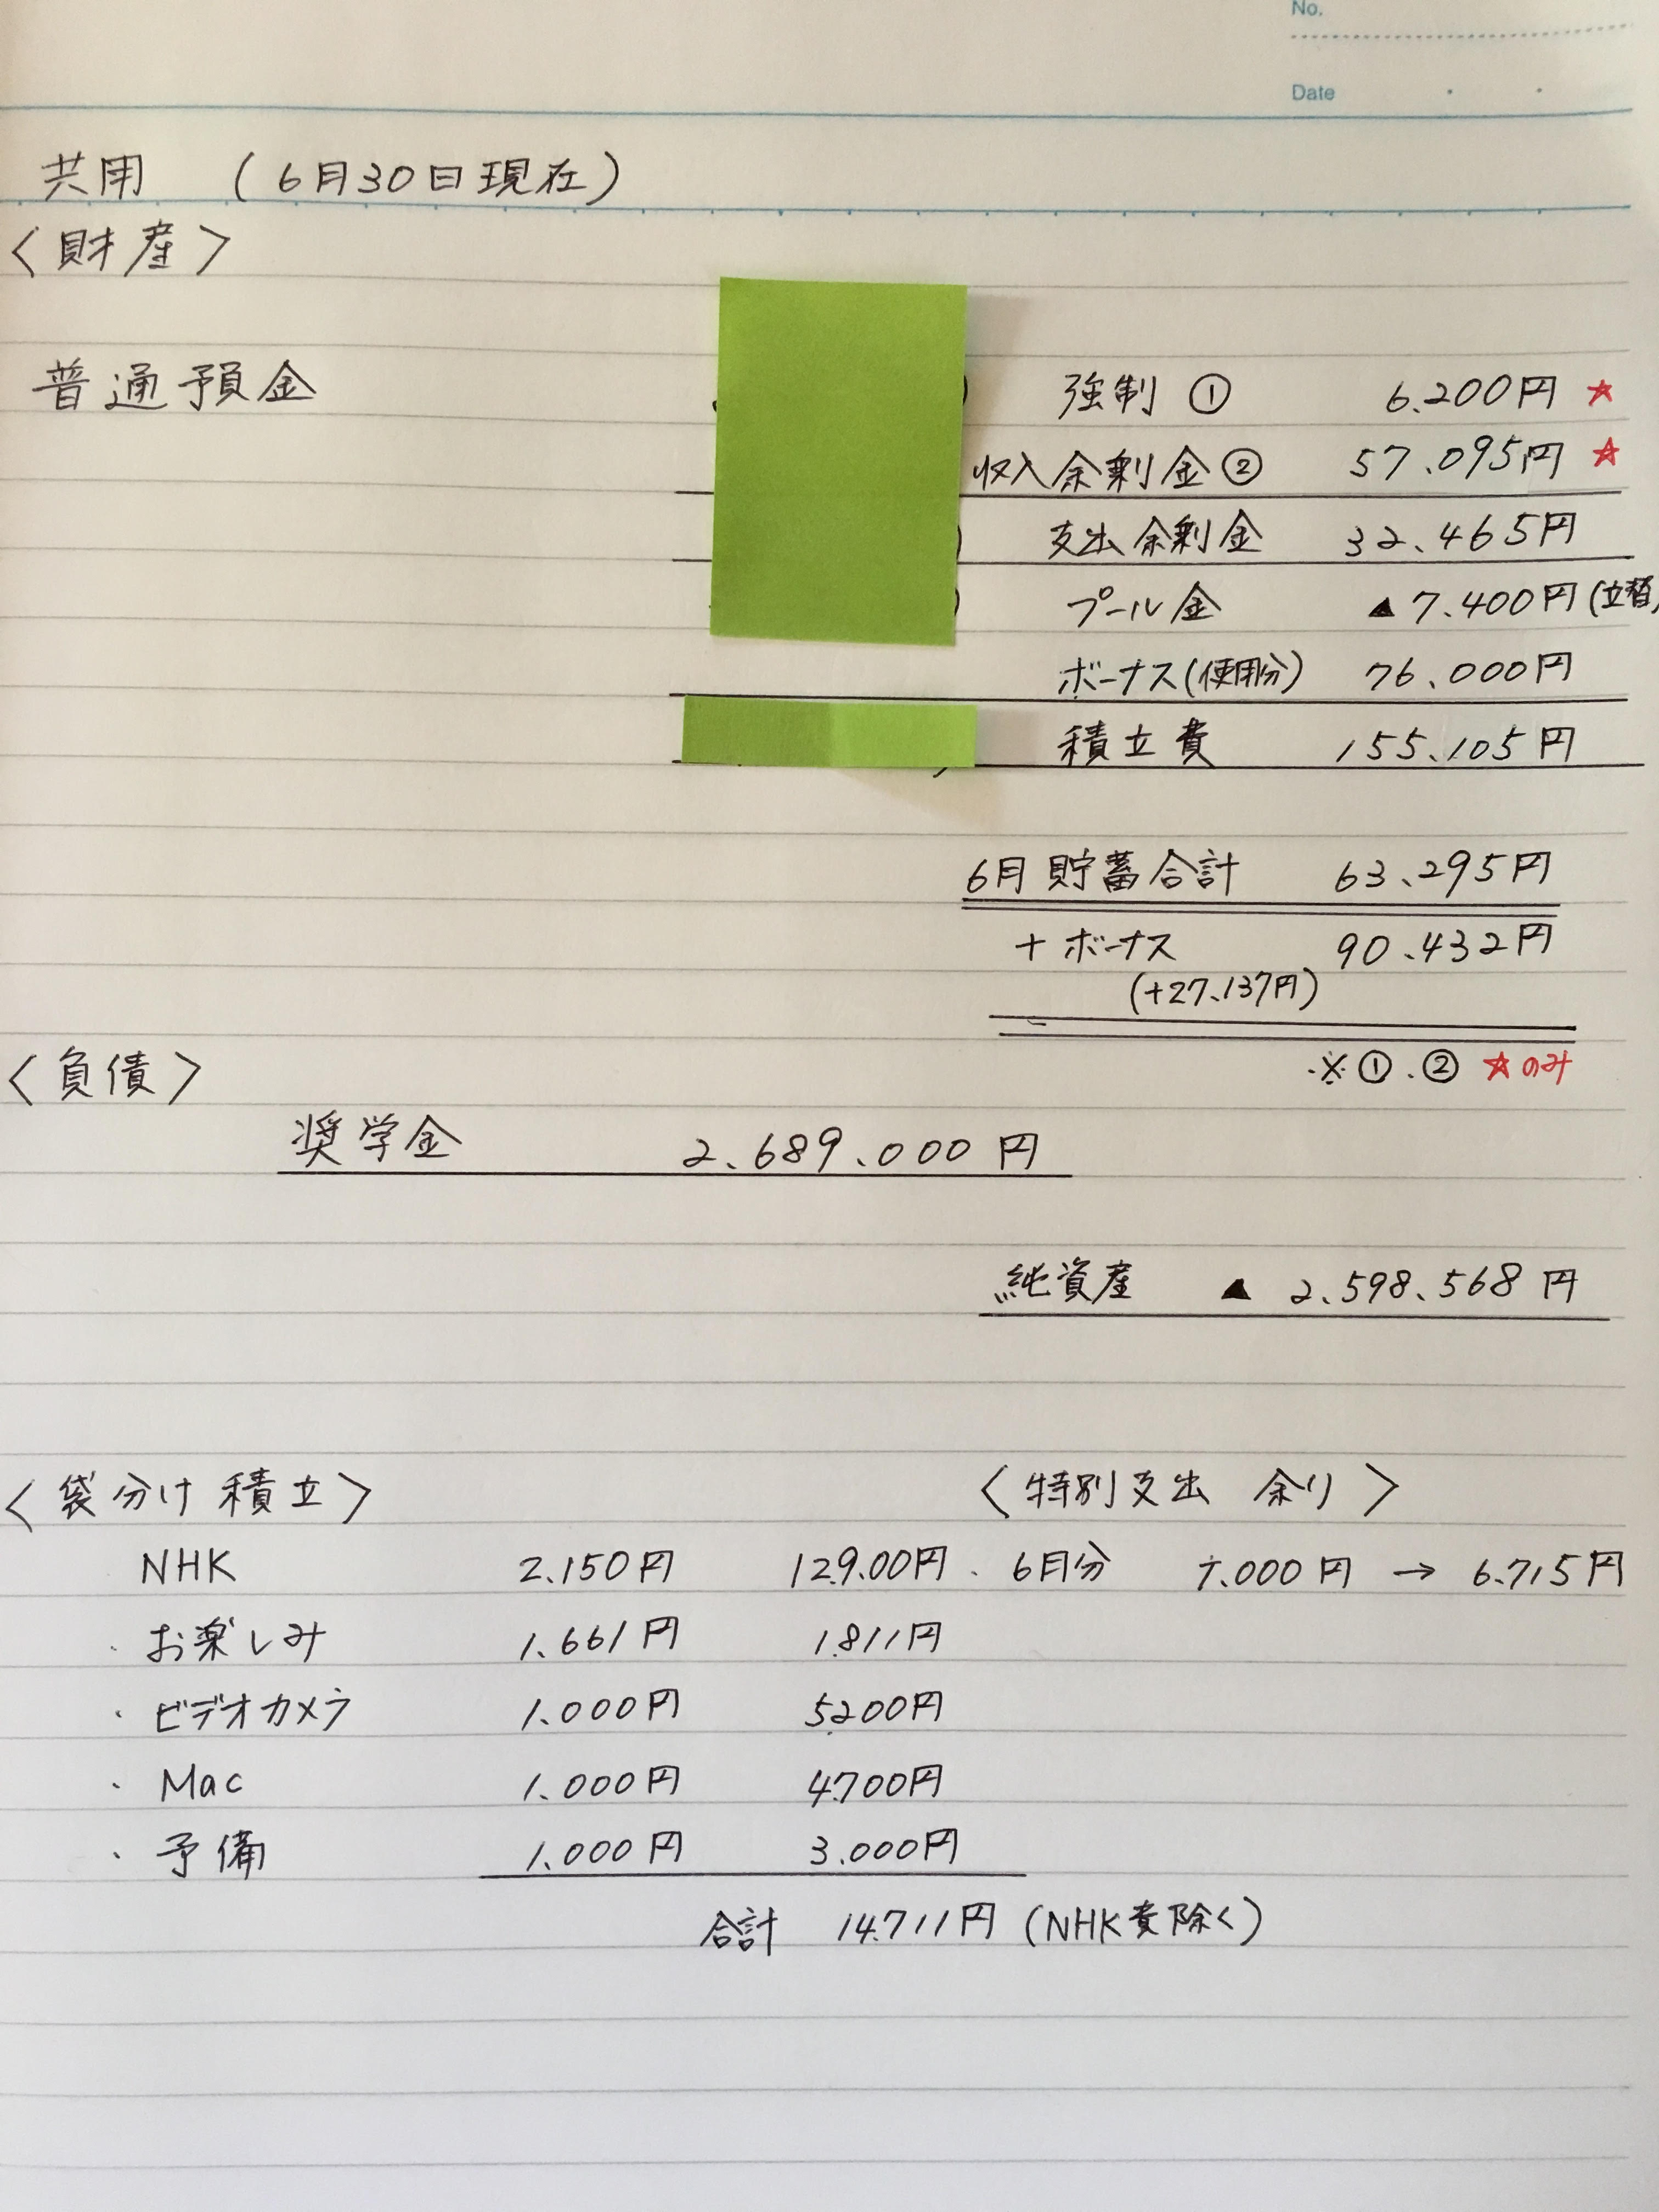 No.
Date
共用 (6月30日現在)
〈財産〉
普通預金 強制 ① 6.200円 ☆
収入余剰金② 57.095円 ☆
支出余剰金 32.465円
プール金 ▲7.400円(立替)
ボーナス(使用分) 76.000円
積立費 155.105円
6月貯蓄合計 63.295円
+ボーナス 90.432円
(+27.137円)
※①.② ☆のみ
〈負債〉
奨学金 2.689.000円
純資産 ▲2.598.568円
〈袋分け積立〉 〈特別支出 余り〉
NHK 2.150円 129.00円 ・6月分 7.000円 → 6.715円
・お楽しみ 1.661円 1.811円
・ビデオカメラ 1.000円 5200円
・Mac 1.000円 4.700円
・予備 1.000円 3.000円
合計 14.711円 (NHK費除く)